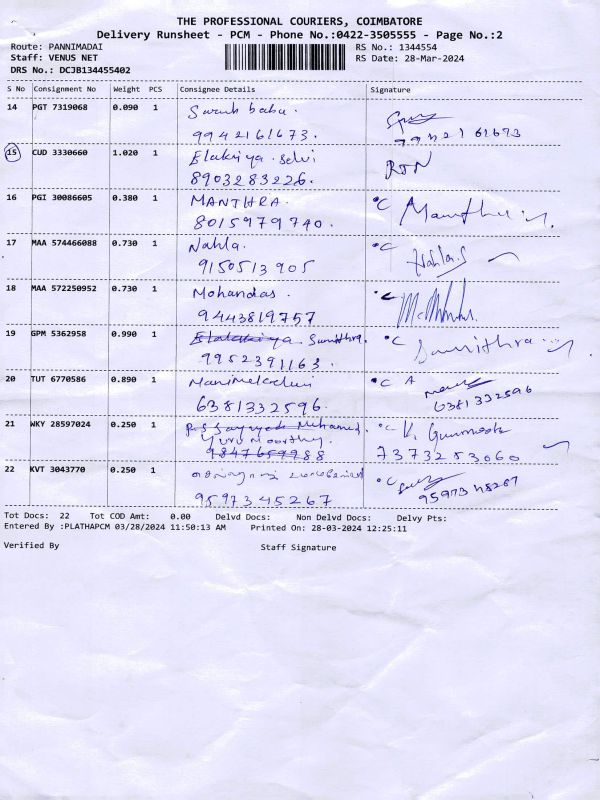 THE PROFESSIONAL COURIERS, COIMBATORE
Delivery Runsheet - PCM - Phone No.:0422-3505555 - Page No.:2
Route: PANNIMADAI RS No.: 1344554
Staff: VENUS NET RS Date: 28-Mar-2024
DRS No.: DCJB134455402
S No Consignment No Weight PCS Consignee Details Signature
14 PGT 7319068 0.090 1 Sarath babu
9942161673.
15 CUD 3330660 1.020 1 Elakiya. selvi RTN
8903283226.
16 PGI 30086605 0.380 1 MANTHRA. °C
8015979740.
17 MAA 574466088 0.730 1 Nahla. °C Nahla.S
9150513905
18 MAA 572250952 0.730 1 Mohandas. °C
9443819757
19 GPM 5362958 0.990 1 Elalakiya Sumithra. °C Sumithra
9952391163.
20 TUT 6770586 0.890 1 °C A
6381332596. 6381332596
21 WKY 28597024 0.250 1 °C K.
Guru Moorthy.
9847659988 7373253060
22 KVT 3043770 0.250 1 °C
9597345267
Tot Docs: 22 Tot COD Amt: 0.00 Delvd Docs: Non Delvd Docs: Delvy Pts:
Entered By :PLATHAPCM 03/28/2024 11:50:13 AM Printed On: 28-03-2024 12:25:11
Verified By Staff Signature